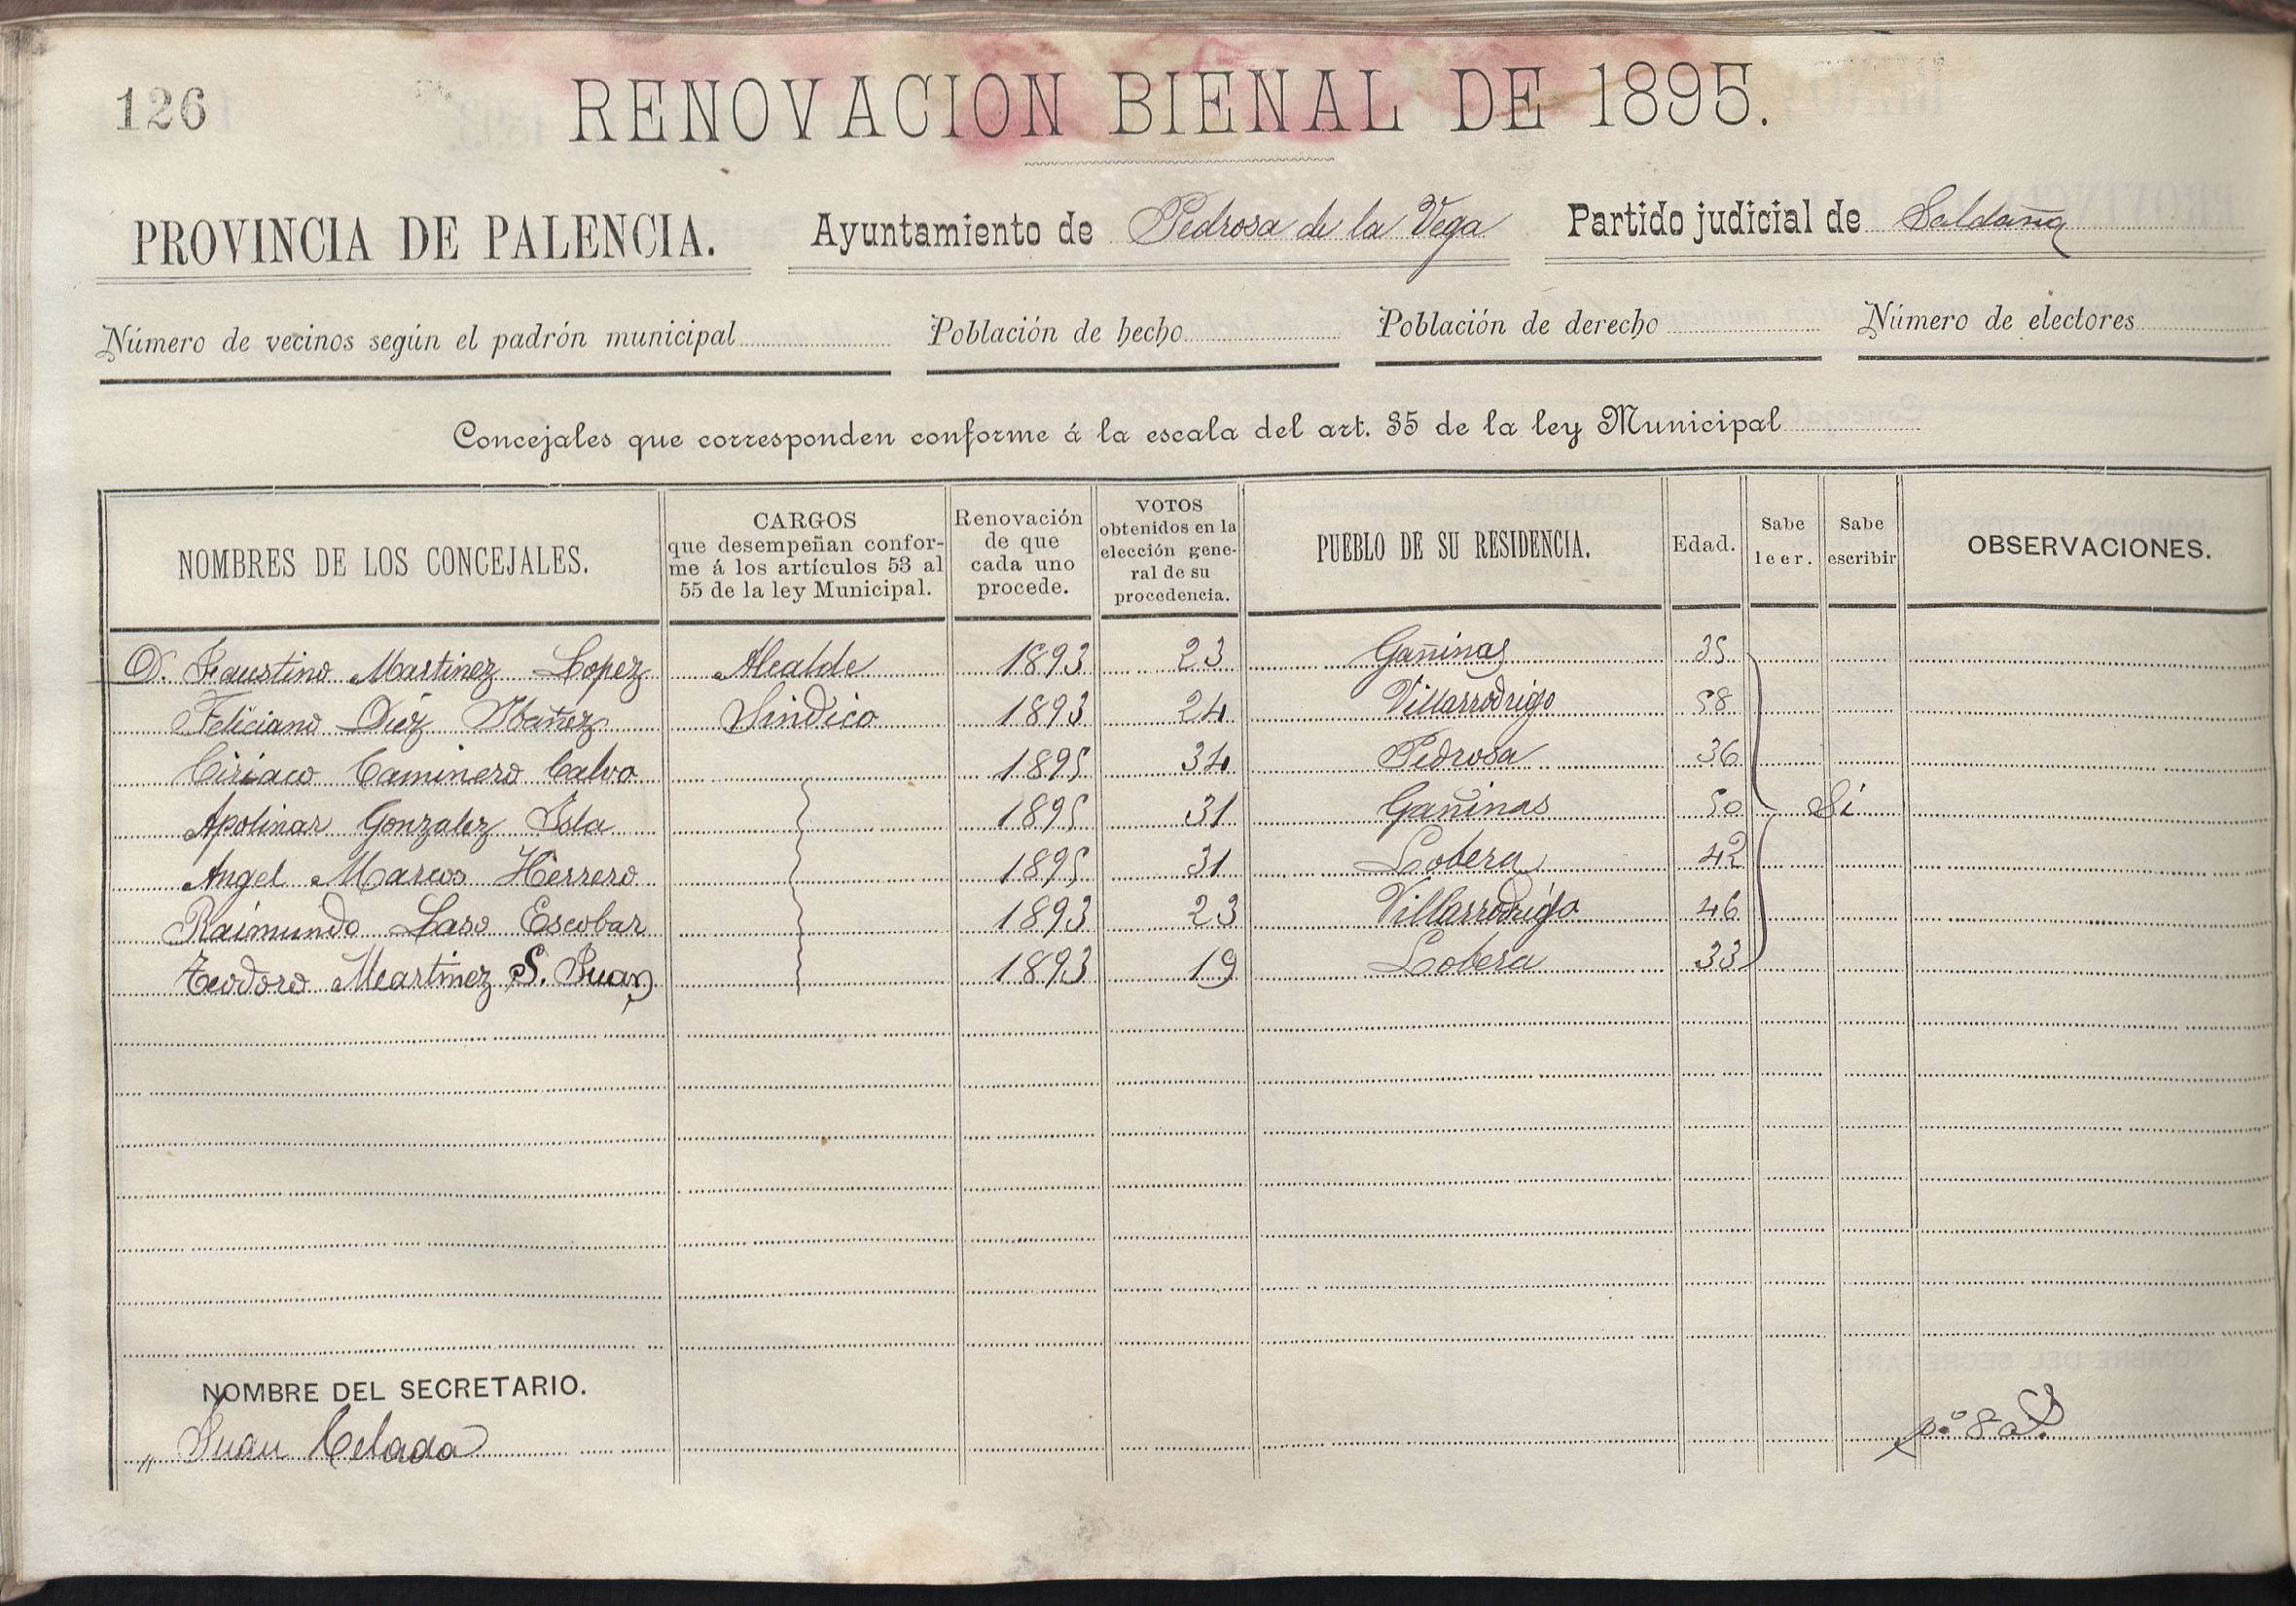 126
RENOVACION BIENAL DE 1895.
PROVINCIA DE PALENCIA. Ayuntamiento de Pedrosa de la Vega Partido judicial de Saldaña
Número de vecinos según el padrón municipal Población de hecho Población de derecho Número de electores
Concejales que corresponden conforme á la escala del art. 35 de la ley Municipal
NOMBRES DE LOS CONCEJALES. CARGOS que desempeñan confor- me á los artículos 53 al 55 de la ley Municipal. Renovación de que cada uno procede. VOTOS obtenidos en la elección gene- ral de su procedencia. PUEBLO DE SU RESIDENCIA. Edad. Sabe leer. Sabe escribir OBSERVACIONES.
D. Faustino Martinez Lopez Alcalde 1893 23 Gañinas 35
Feliciano Diez Ibañez Sindico 1893 24 Villarrodrigo 58
Ciriaco Caminero Calvo 1895 34 Pedrosa 36
Apolinar Gonzalez Isla 1895 31 Gañinas 50 Si
Angel Marcos Herrero 1895 31 Lobera 42
Raimundo Laso Escobar 1893 23 Villarrodrigo 46
Teodoro Martinez S. Juan 1893 19 Lobera 33
NOMBRE DEL SECRETARIO.
" Juan Celada